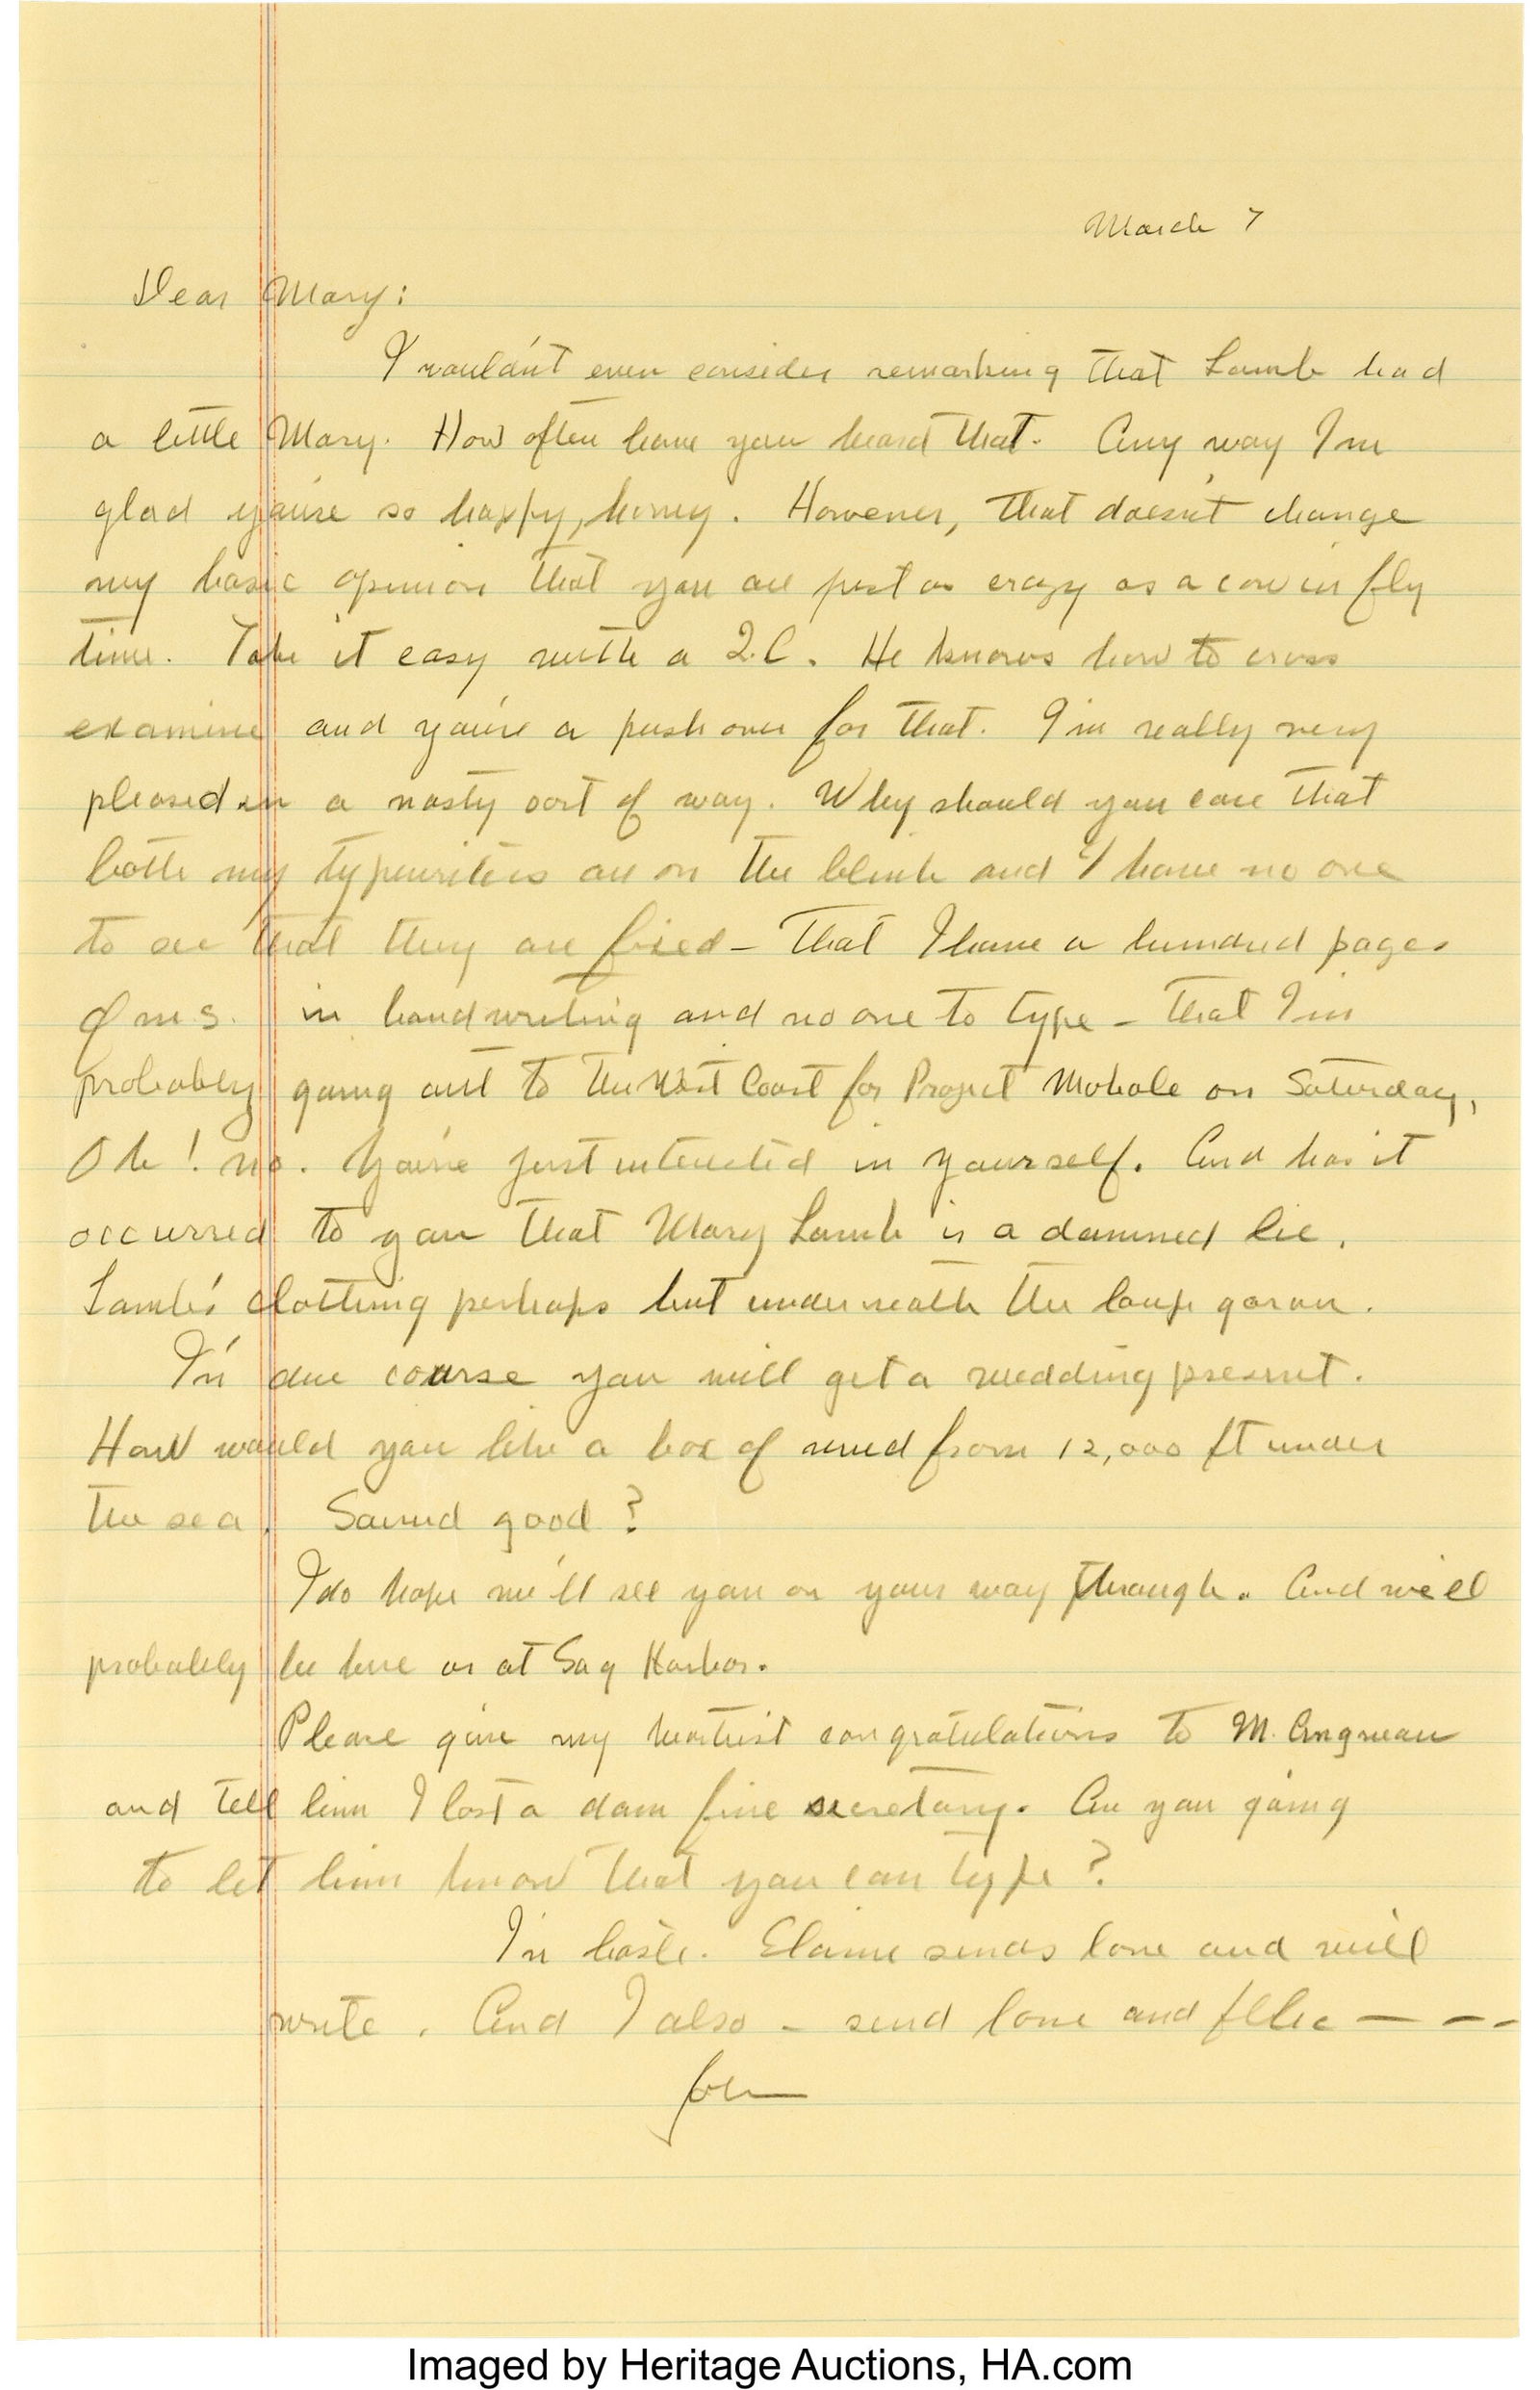 March 7
Dear Mary:
I wouldn't even consider remarking that Lamb had
a little Mary. How often have you heard that. Any way I'm
glad you're so happy, honey. However, that doesn't change
my basic opinion that you are just as crazy as a cow in fly
time. Take it easy with a Q.C. He knows how to cross
examine and you're a push over for that. I'm really very
pleased in a nasty sort of way. Why should you care that
both my typewriters are on the blink and I have no one
to see that they are fixed - that I have a hundred pages
of ms. in handwriting and no one to type - that I'm
probably going out to the West Coast for Project Mohole on Saturday,
Oh! no. You're just interested in yourself. And has it
occurred to you that Mary Lamb is a damned lie.
Lamb's clothing perhaps but underneath the loup garou.
In due course you will get a wedding present.
How would you like a box of mud from 12,000 ft under
the sea. Sound good?
I do hope we'll see you on your way through. And we'll
probably be here or at Sag Harbor.
Please give my heartiest congratulations to M.
and tell him I lost a dam fine secretary. Are you going
to let him know that you can type?
In haste. Elaine sends love and will
write. And I also - send love and - - -
John
Imaged by Heritage Auctions, HA.com